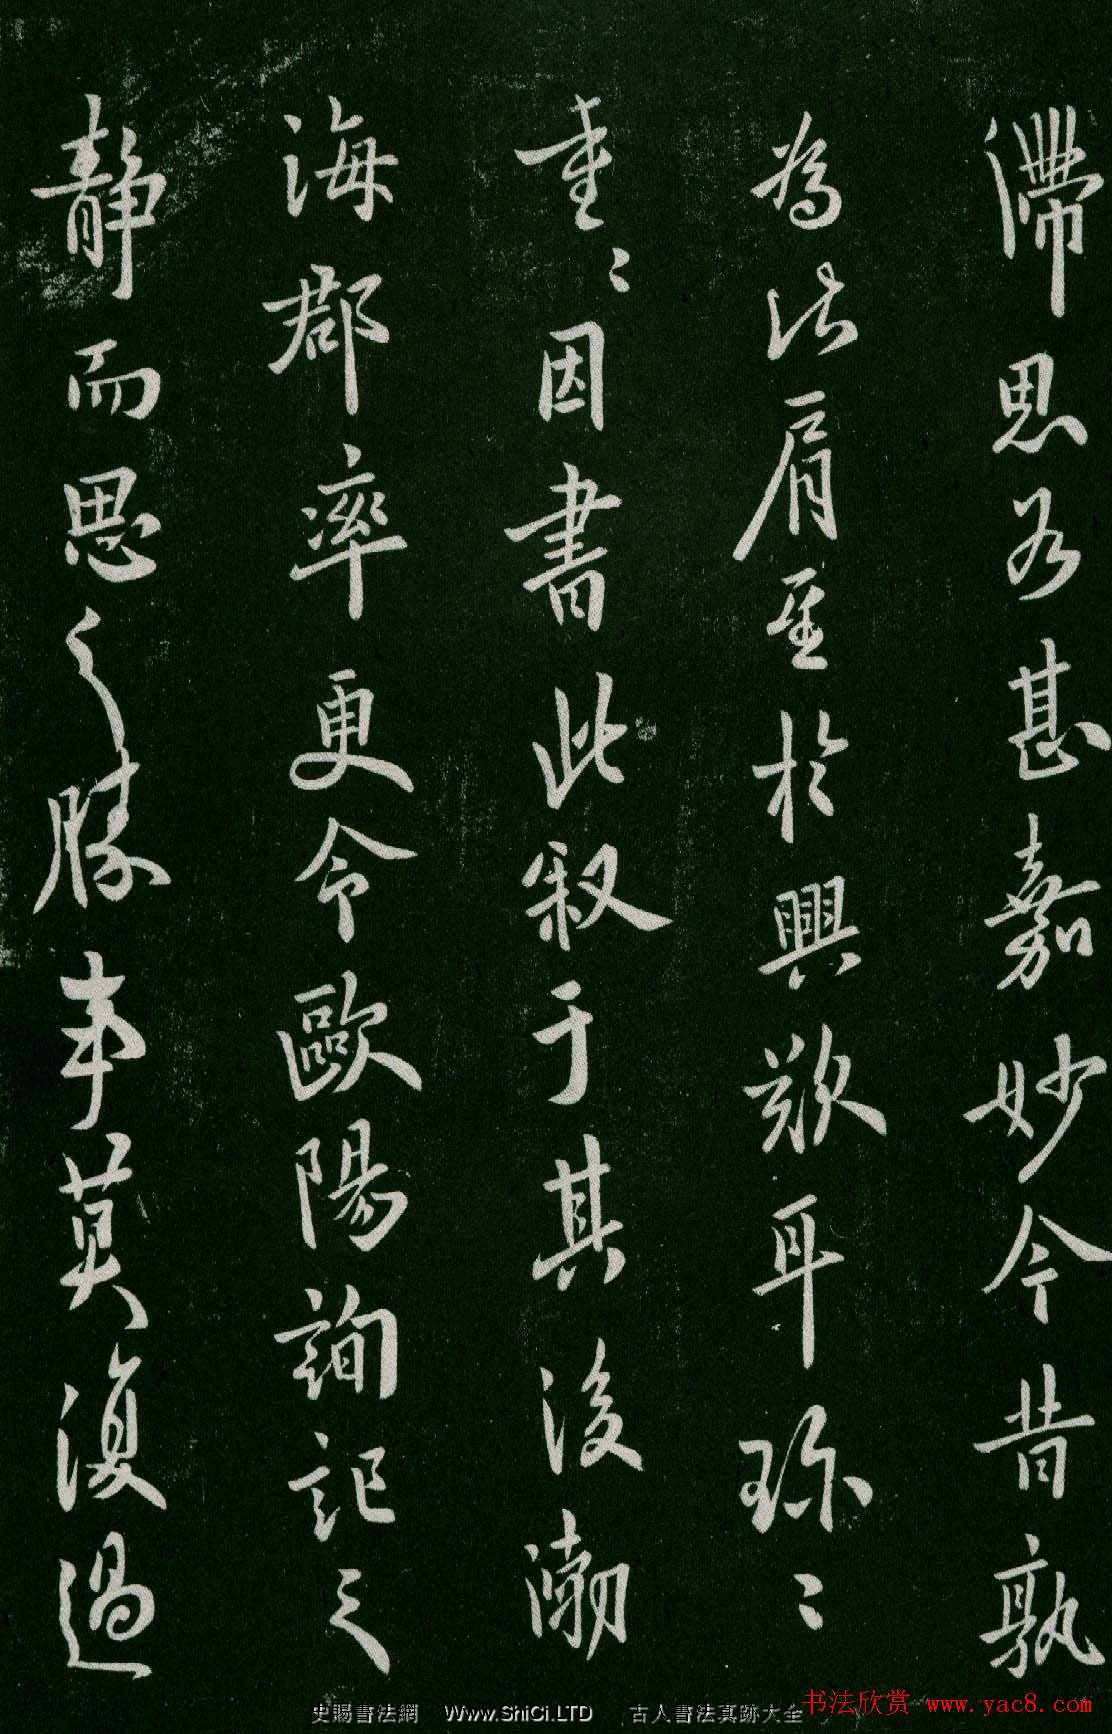 滯思即甚嘉妙今昔孰
為比肩至於興歎耳珍〻
重〻因書此敘于其後渤
海郡率更令歐陽詢記之
靜而思之勝事莫復過
史賜書法網 Www.ShiCi.LTD 古人書法真跡大全
书法欣赏 www.yac8.com